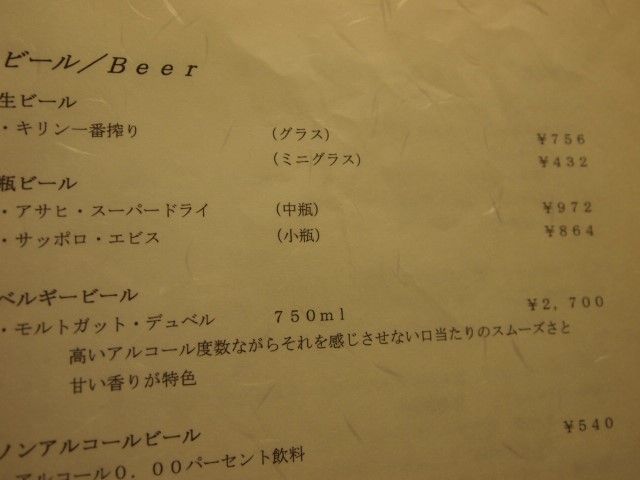 ビール／Beer
生ビール
・キリン一番搾り （グラス） ￥756
（ミニグラス） ￥432
瓶ビール
・アサヒ・スーパードライ （中瓶） ￥972
・サッポロ・エビス （小瓶） ￥864
ベルギービール
・モルトガット・デュベル 750ml ￥2,700
高いアルコール度数ながらそれを感じさせない口当たりのスムーズさと
甘い香りが特色
ノンアルコールビール ￥540
アルコール0．00パーセント飲料